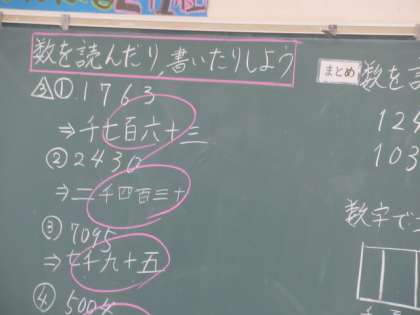 数を読んだり、書いたりしよう
①1763
⇒千七百六十三
②2430
⇒二千四百三十
③7095
⇒七千九十五
④5004
まとめ
数を読
124
103
数字で